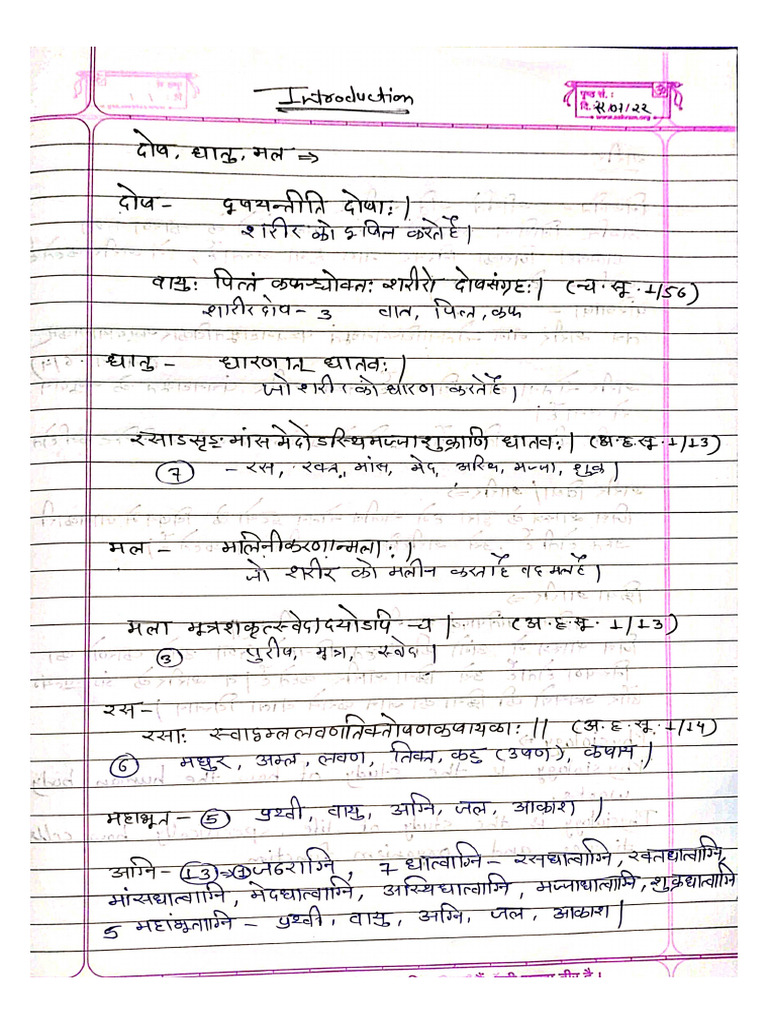 Introduction
पृष्ठ सं. :
दि. /07/22
दोष, धातु, मल ⇒
दोष - दूषयन्तीति दोषाः|
शरीर को दूषित करते है|
वायुः पित्तं कफश्चोक्तः शारीरो दोषसंग्रहः| (च.सू. 1/56)
शारीर दोष - 3 वात, पित्त, कफ
धातु - धारणात् धातवः|
जो शरीर को धारण करते है|
रसाऽसृङ मांस मेदोऽस्थिमज्जाशुक्राणि धातवः| (अ.ह.सू. 1/13)
7 - रस, रक्त, मांस, मेद, अस्थि, मज्जा, शुक्र|
मल - मलिनीकरणान्मलाः|
जो शरीर को मलीन करता है वह मल है|
मला मूत्रशकृत्स्वेदादयोऽपि च| (अ.ह.सू. 1/13)
3 पुरीष, मूत्र, स्वेद|
रस -
रसाः स्वाद्वम्ललवणतिक्तोषणकषायकाः|| (अ.ह.सू. 1/14)
6 मधुर, अम्ल, लवण, तिक्त, कटु (उषण), कषाय|
महाभूत - 5 पृथ्वी, वायु, अग्नि, जल, आकाश|
अग्नि - 13 ⇒ 1 जठराग्नि, 7 धात्वाग्नि - रसधात्वाग्नि, रक्तधात्वाग्नि,
मांसधात्वाग्नि, मेदधात्वाग्नि, अस्थिधात्वाग्नि, मज्जाधात्वाग्नि, शुक्रधात्वाग्नि
5 महाभूताग्नि - पृथ्वी, वायु, अग्नि, जल, आकाश|